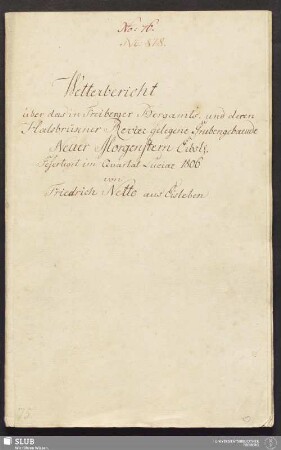 No: 76.
Wetterbericht
über das in Freiberger Bergamts, und deren
Halsbrünner Revier gelegene Grubengebäude
Neuer Morgenstern Erbst.
Gefertiget im Quartal Luciae 1806
von
Friedrich Netto aus Eisleben
SLUB
Wir führen Wissen.